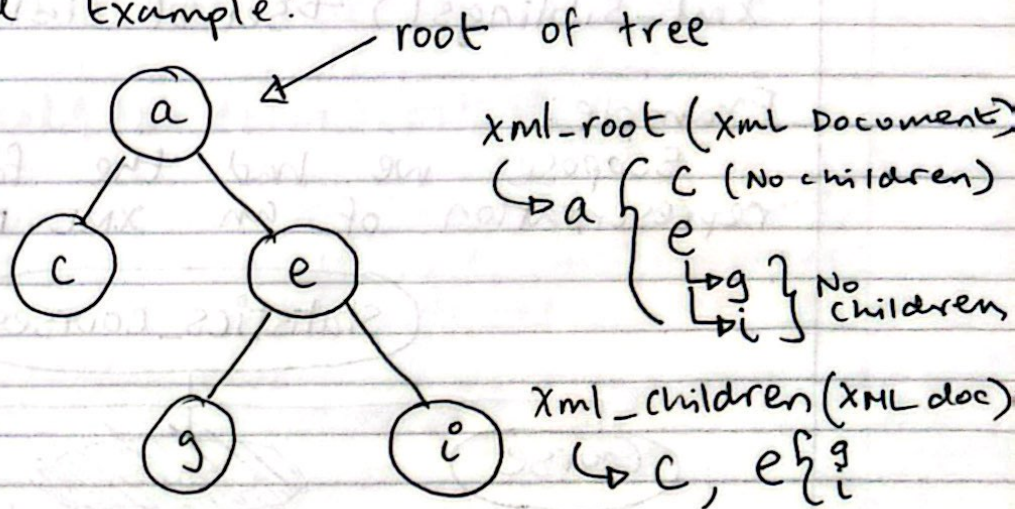 Example:
root of tree
a
c
e
g
i
xml_root (xml Document)
↳ a { c (No children)
e
↳ g } No
↳ i } children
xml_children (XML doc)
↳ c, e { g
i